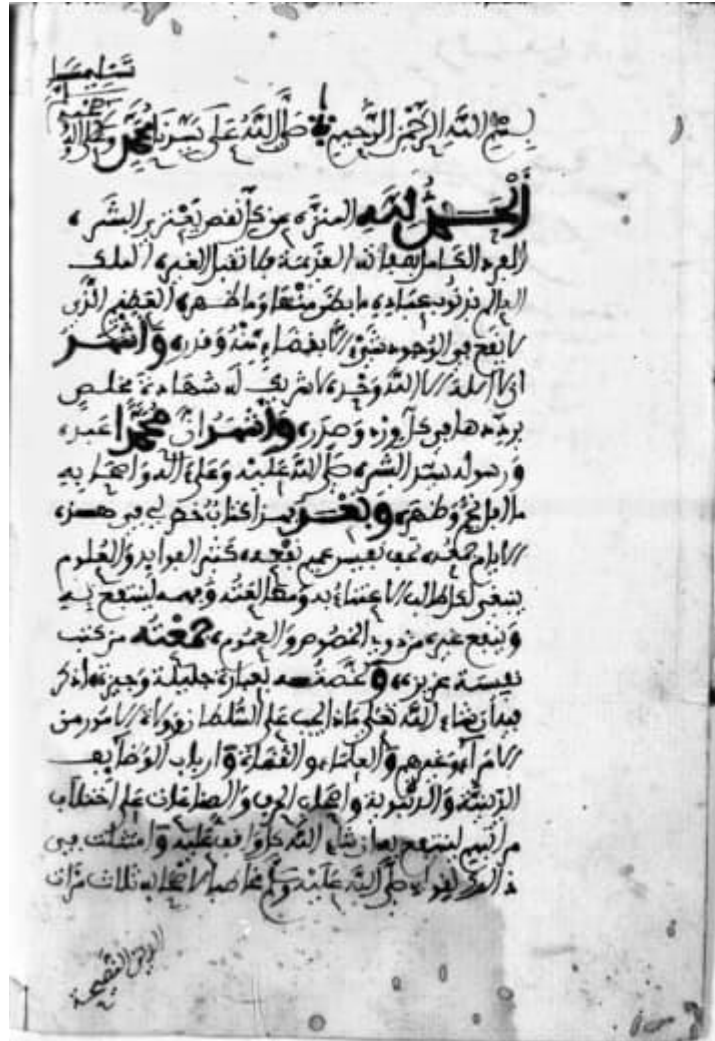 تسليما
بسم الله الرحمن الرحيم صلى الله على سيدنا محمد وعلى اله وصحبه وسلم
الحمد لله المنزه عن كل نقص يعتري البشر،
الفرد الكامل بصفاته القديمة فلا تقبل الغير، الملك
العالم بذنوب عباده ما بطن منها وما ظهر، العظيم الذي
لا يقع في الوجود شيء الا بقضاء منه وقدر، وأشهد
ان لا اله الا الله وحده لا شريك له شهادة مخلص
في كل ورد وصدر، وأشهد ان محمدا عبده
ورسوله سيد البشر، صلى الله عليه وعلى اله واصحابه
ما وظهر، وبعد فهذا كتاب لي في هذه
الايام جمعه نفيس عميم نفعه، كثير الفوايد والعلوم
ينبغي لكل طالب الاعتناء به ومطالعته وفهمه لينتفع به
وينفع غيره من ذوي الخصوص والعموم، جمعته من كتب
نفيسة عزيزة، بعبارة جليلة وجيزة، اذكر
فيه ان شاء الله تعلى ما يجب على السلطان وولاة الامور من
الامراء وغيرهم والعلماء والقضاة وارباب الوظايف
الدينية والدنيوية واهل الحرف والصناعات على اختلاف
لينتفع به ان شاء الله كل واقف عليه وامتثلت في
ذلك لقوله صلى الله عليه وسلم مخاطبا لاصحابه ثلاث مرات
الدين النصيحة